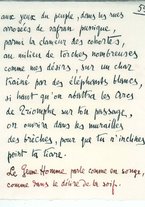 aux yeux du peuple, dans les rues
arrosées de safran punique,
parmi la clameur des cohortes,
au milieu de torches nombreuses
comme nos désirs, sur un char
traîné par des éléphants blancs,
si haut qu'on abattra les Arcs
de Triomphe sur ton passage,
on ouvrira dans les murailles
des brèches, pour que tu n'inclines
point ta tiare.
Le Jeune Homme parle comme en songe,
comme dans le désire de la soif.